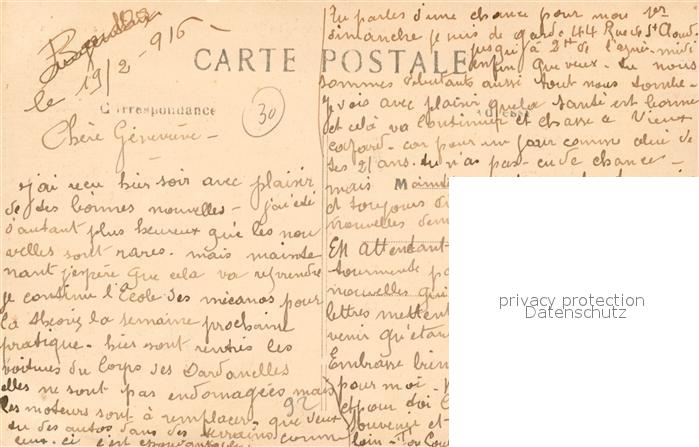 le 19/2-916-
CARTE POSTALE
Correspondance
30
Chère Géneviève-
j'ai reçu hier soir avec plaisir
de tes bonnes nouvelles - j'ai été
d'autant plus heureux que les nou
velles sont rares. mais mainte
nant j'espère que cela va reprendre
je continue l'Ecole des mécanos pour
la théorie la semaine prochaine
pratique - hier sont rentrés les
voitures du Corps des Dardanelles
elles ne sont pas endomagées mais
les moteurs sont à remplacer que veux
tu des autos dans des terrains comm
ceux-ci c'est
92
Tu parles d'une chance pour mon 1er
dimanche je suis de garde 44 Rue de St Cloud.
jusqu'à 2h de l'après-midi
enfin que veux-tu nous
sommes débutants aussi tout nous tombe-
Je vois avec plaisir que la santé est bonne
et celà va continuer et chasse ce vieux
cafard - car pour un jour comme celui de
tes 21 ans. tu n'as pas eu de chance -
mais
et toujours
nouvelles
En Attendant
tourmente
nouvelles qui
lettres mettent
venir
Embrasse bien
pour moi -
et pour toi
Souvenir et
loin - Ton
privacy protection
Datenschutz